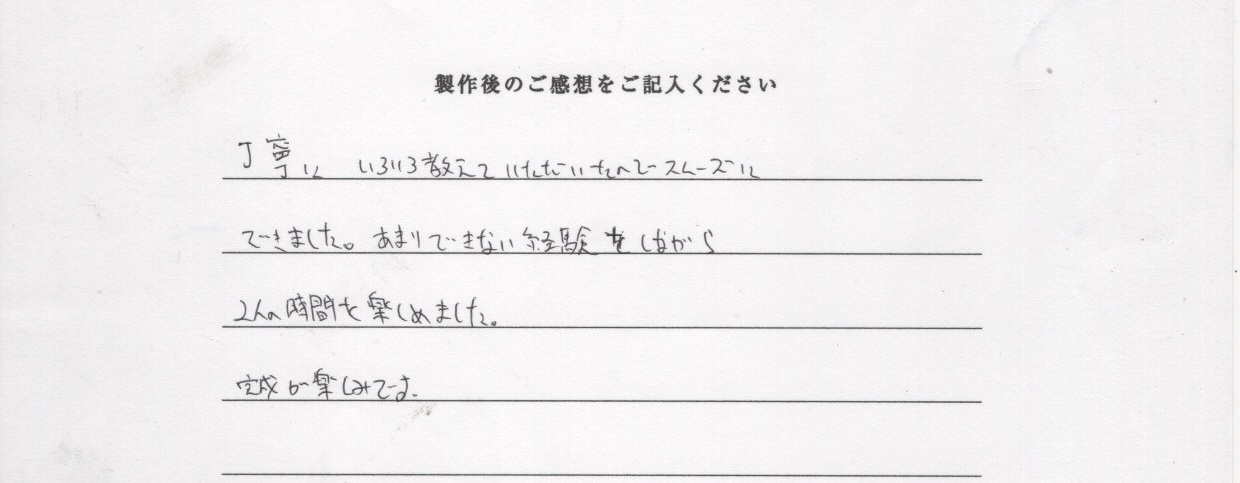 製作後のご感想をご記入ください
丁寧に いろいろ教えていただいたのでスムーズに
できました。あまりできない経験をしながら
2人の時間を楽しめました。
完成が楽しみです。